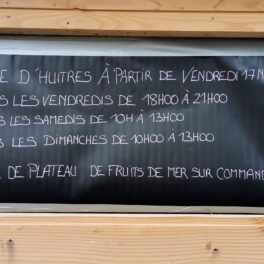 E D'HUITRES À PARTIR DE VENDREDI 17 N
S LES VENDREDIS DE 18H00 À 21H00
S LES SAMEDIS DE 10H À 13H00
S LES DIMANCHES DE 10H00 À 13H00
DE PLATEAU DE FRUITS DE MER SUR COMMAN